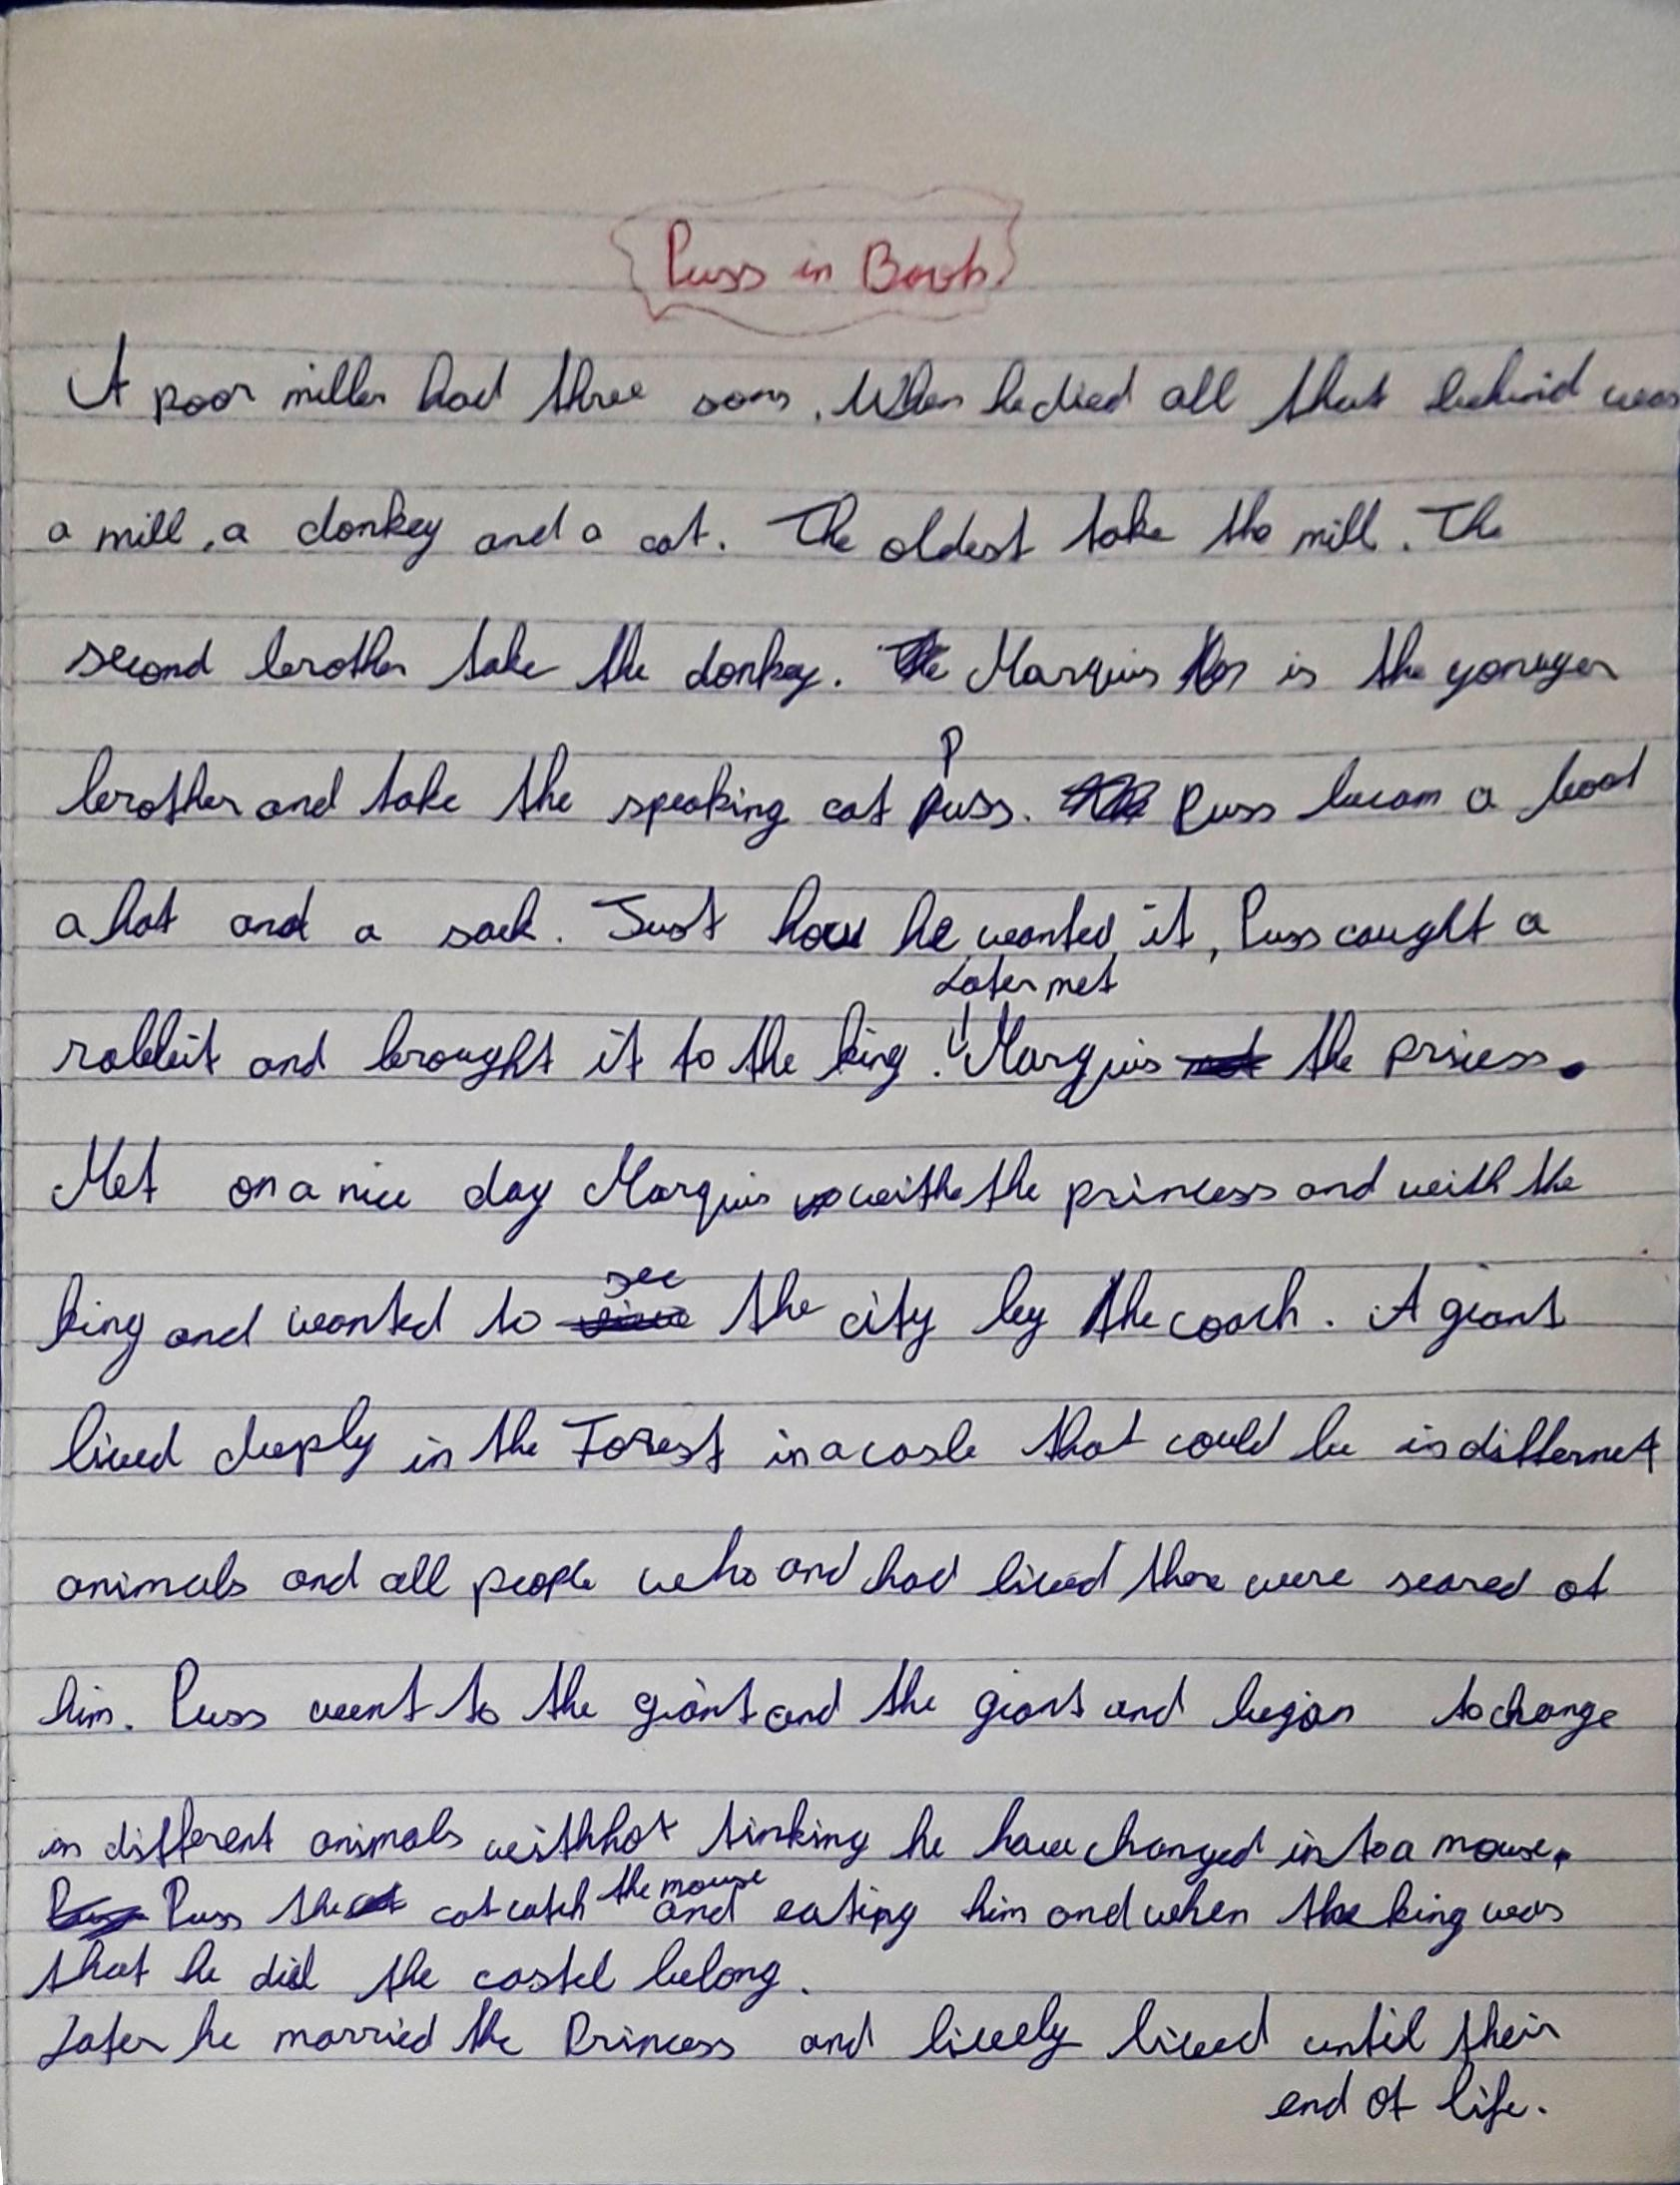 Puss in Boots
A poor miller had three sons. When he died all that behind was
a mill, a donkey and a cat. The oldest take the mill. The
second brother take the donkey. Marquis is the yonuger
brother and take the speaking cat Puss. Puss becam a boot
a hat and a sack. Just how he wanted it, Puss caught a
Later met
rabbit and brought it to the king. Marquis the pricess.
Met on a nice day Marquis withe the princess and with the
see
king and wanted to the city by the coach. A giant
lived deeply in the Forest in a casle that could be in differnet
animals and all people who and had lived there were scared of
him. Puss went to the giant and the giant and began to change
in different animals withhot tinking he have changed into a mouse.
the mouse
Puss the cat catch and eating him and when the king was
that he did the castel belong.
Later he married the Princess and lively lived until their
end of life.